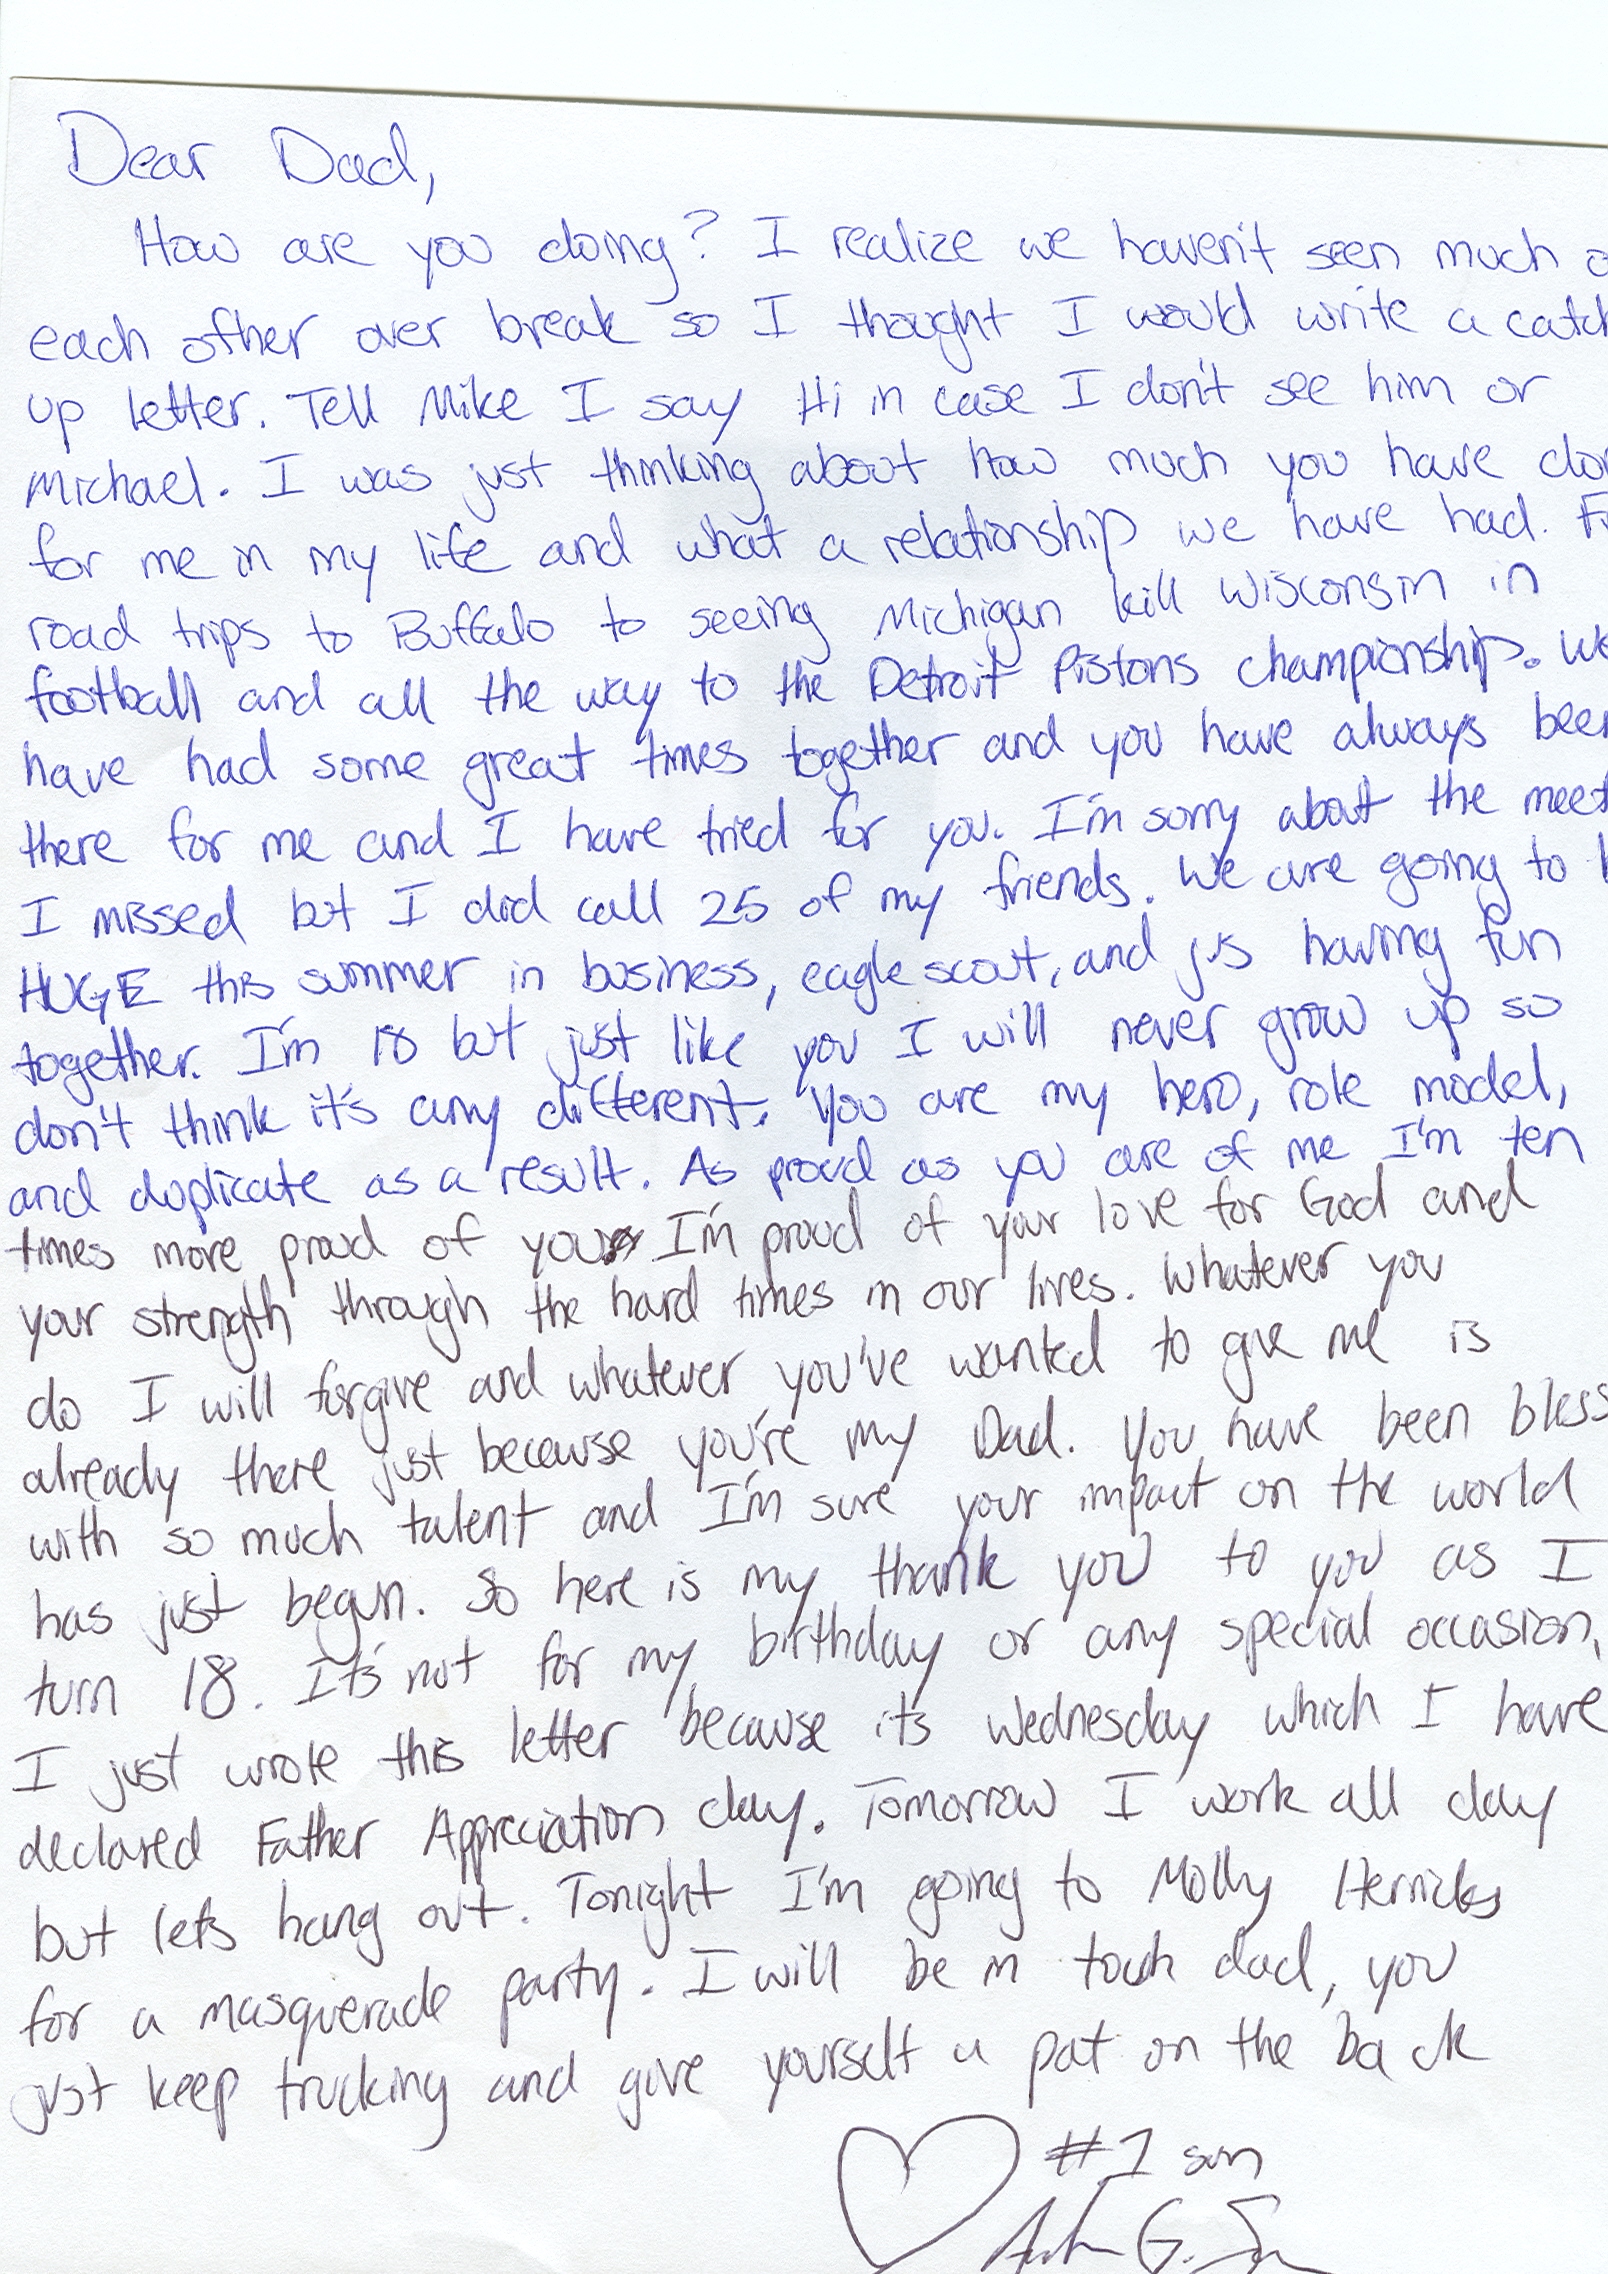 Dear Dad,
How are you doing? I realize we haven't seen much o
each other over break so I thought I would write a catch
up letter. Tell Mike I say Hi in case I don't see him or
Michael. I was just thinking about how much you have don
for me in my life and what a relationship we have had. Fr
road trips to Buffalo to seeing Michigan kill Wisconsin in
football and all the way to the Detroit Pistons championship. We
have had some great times together and you have always been
there for me and I have tried for you. I'm sorry about the meet
I missed but I did call 25 of my friends. We are going to b
HUGE this summer in business, eagle scout, and jus having fun
together. I'm 18 but just like you I will never grow up so
don't think it's any different. You are my hero, role model,
and duplicate as a result. As proud as you are of me I'm ten
times more proud of you. I'm proud of your love for God and
your strength through the hard times in our lives. Whatever you
do I will forgive and whatever you've wanted to give me is
already there just because you're my Dad. You have been bless
with so much talent and I'm sure your impact on the world
has just begun. So here is my thank you to you as I
turn 18. It's not for my birthday or any special occasion,
I just wrote this letter because its Wednesday which I have
declared Father Appreciation day. Tomorrow I work all day
but lets hang out. Tonight I'm going to Molly Herricks
for a masquerade party. I will be in touch dad, you
just keep trucking and give yourself a pat on the back
#1 son
G.